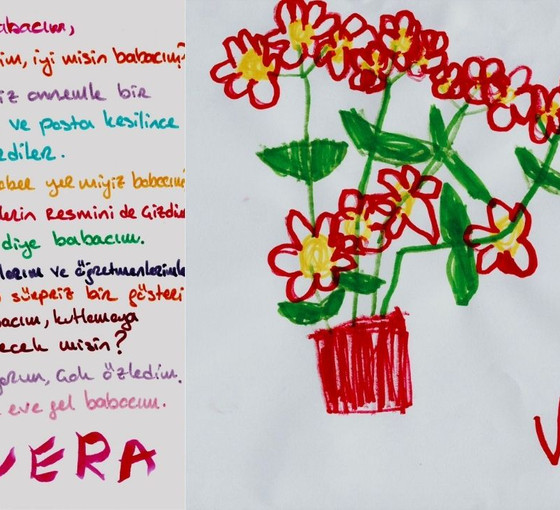 abacım,
im, iyi misin babacım?
iz annemle bir
ve pasta kesilince
ediler.
aber yer miyiz babacım
lerin resmini de çizdim
diye babacım.
larım ve öğretmenlerimle
sürpriz bir gösteri
bacım, kutlamaya
ecek misin?
yorum, çok özledim.
eve gel babacım.
VERA
V